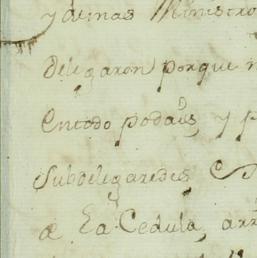 y demas Ministro
delegaron porque
en todo
y p
Subdelegaredes
La Cedula, arr